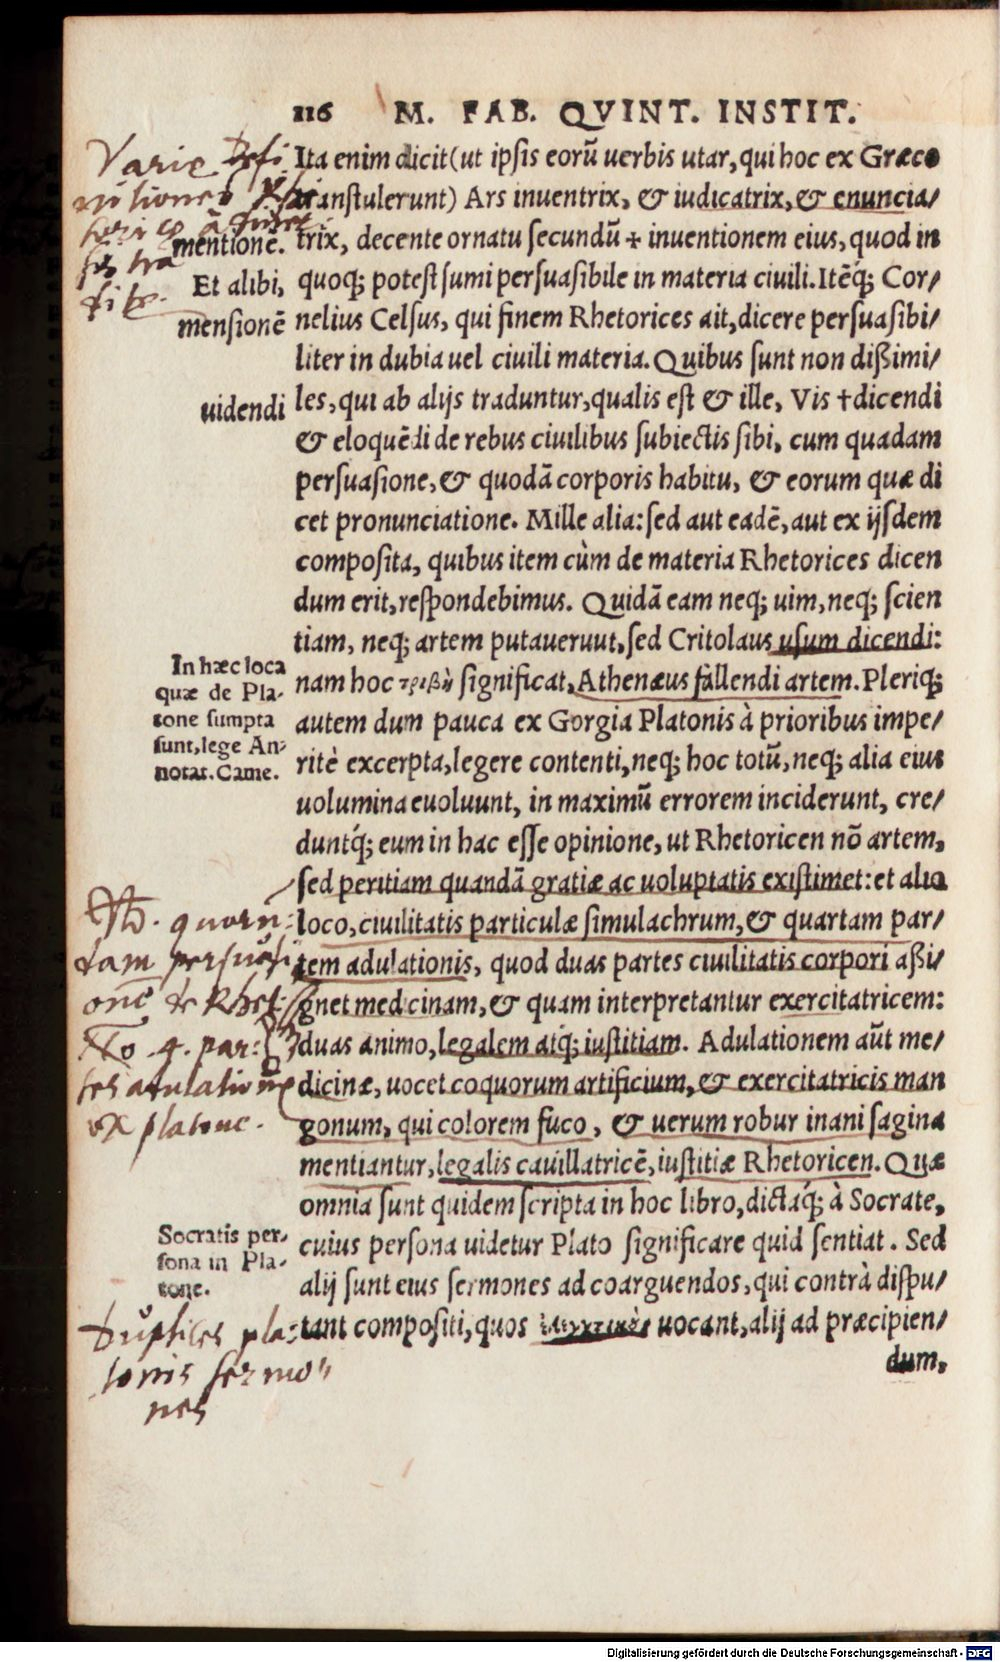 116 M. FAB. QVINT. INSTIT.
Ita enim dicit (ut ipsis eorũ uerbis utar, qui hoc ex Græco
transtulerunt) Ars inuentrix, & iudicatrix, & enuncia/
trix, decente ornatu secundũ + inuentionem eius, quod in
quoq; potest sumi persuasibile in materia ciuili. Itẽq; Cor/
nelius Celsus, qui finem Rhetorices ait, dicere persuasibi/
liter in dubia uel ciuili materia. Quibus sunt non dißimi/
les, qui ab alijs traduntur, qualis est & ille, Vis †dicendi
& eloquẽdi de rebus ciuilibus subiectis sibi, cum quadam
persuasione, & quodã corporis habitu, & eorum quæ di
cet pronunciatione. Mille alia: sed aut eadẽ, aut ex ijsdem
composita, quibus item cùm de materia Rhetorices dicen
dum erit, respondebimus. Quidã eam neq; uim, neq; scien
tiam, neq; artem putaueruut, sed Critolaus usum dicendi:
nam hoc τριβὴ significat, Athenæus fallendi artem. Pleriq;
autem dum pauca ex Gorgia Platonis à prioribus impe/
ritè excerpta, legere contenti, neq; hoc totũ, neq; alia eius
uolumina euoluunt, in maximũ errorem inciderunt, cre/
duntq́; eum in hac esse opinione, ut Rhetoricen nõ artem,
sed peritiam quandã gratiæ ac uoluptatis existimet: et alio
loco, ciuilitatis particulæ simulachrum, & quartam par/
tem adulationis, quod duas partes ciuilitatis corpori aßi/
gnet medicinam, & quam interpretantur exercitatricem:
duas animo, legalem atq́; iustitiam. Adulationem aũt me/
dicinæ, uocet coquorum artificium, & exercitatricis man
gonum, qui colorem fuco, & uerum robur inani sagina
mentiantur, legalis cauillatricẽ, iustitiæ Rhetoricen. Quæ
omnia sunt quidem scripta in hoc libro, dictaq́; à Socrate,
cuius persona uidetur Plato significare quid sentiat. Sed
alij sunt eius sermones ad coarguendos, qui contrà dispu/
tant compositi, quos uocant, alij ad præcipien/
dum,
Varie Defi
nitiones
mentionẽ.
Et alibi,
mensionẽ
uidendi
In hæc loca
quæ de Pla-
tone sumpta
sunt, lege An-
notat. Came.
quorũ-
dam persuasi
onẽ de Rhet.
4. par-
tes adulationis
ex platone.
Socratis per-
sona in Pla-
tone.
Duplices pla-
tonis sermo-
nes
Digitalisierung gefördert durch die Deutsche Forschungsgemeinschaft - DFG